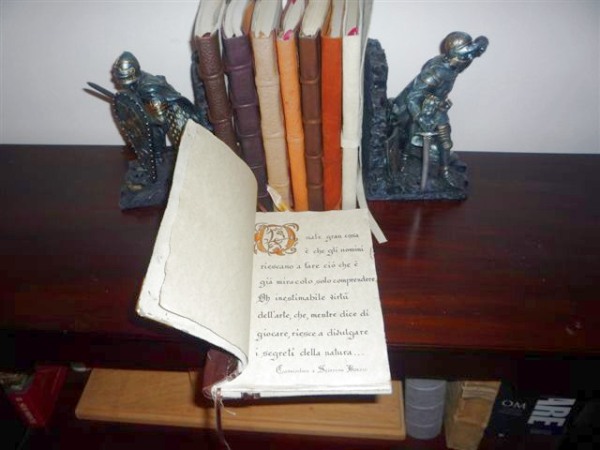 Quale gran cosa
è che gli uomini
riescano a fare ciò che è
già miracolo solo comprendere.
Oh inestimabile virtù
dell'arte, che, mentre dice di
giocare, riesce a divulgare
i segreti della natura...
OM
ARE